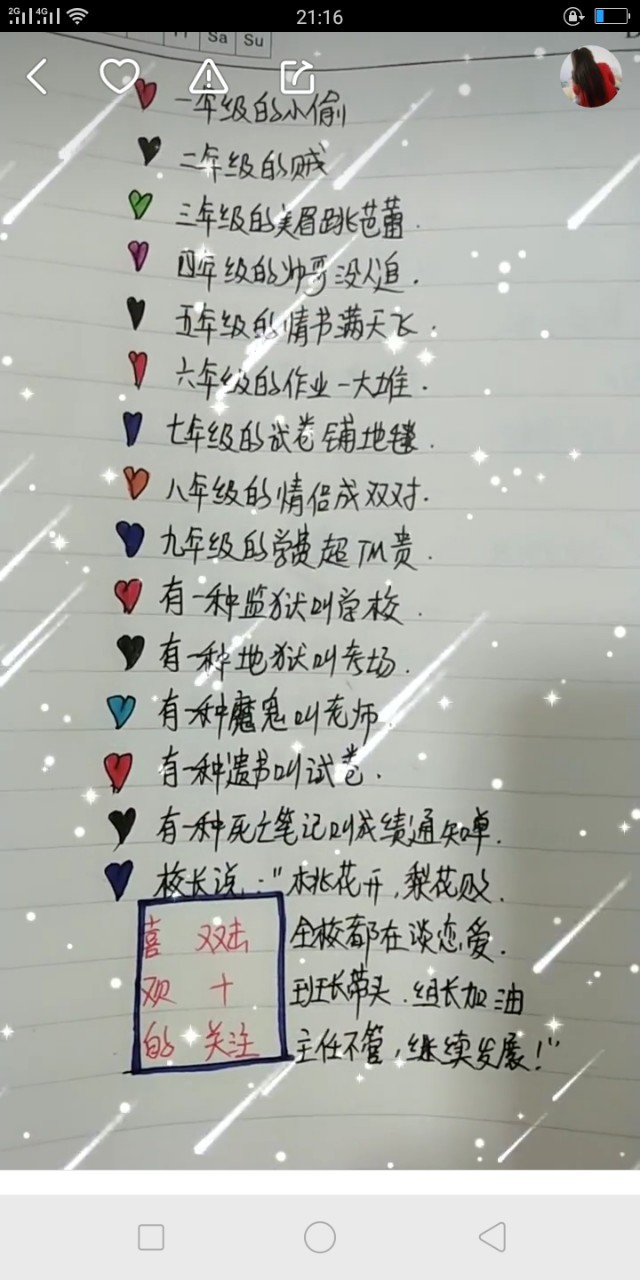 2G 4G 21:16
Sa Su
一年级的小偷
二年级的贼
三年级的美眉跳芭蕾.
四年级的帅哥没人追.
五年级的情书满天飞.
六年级的作业一大堆.
七年级的试卷铺地毯.
八年级的情侣成双对.
九年级的学费超TM贵.
有一种监狱叫学校.
有一种地狱叫考场.
有一种魔鬼叫老师.
有一种遗书叫试卷.
有一种死亡笔记叫成绩通知单.
校长说:"桃花开,梨花败.
全校都在谈恋爱.
班长带头.组长加油
主任不管,继续发展!"
喜 双击
欢 十
的 关注